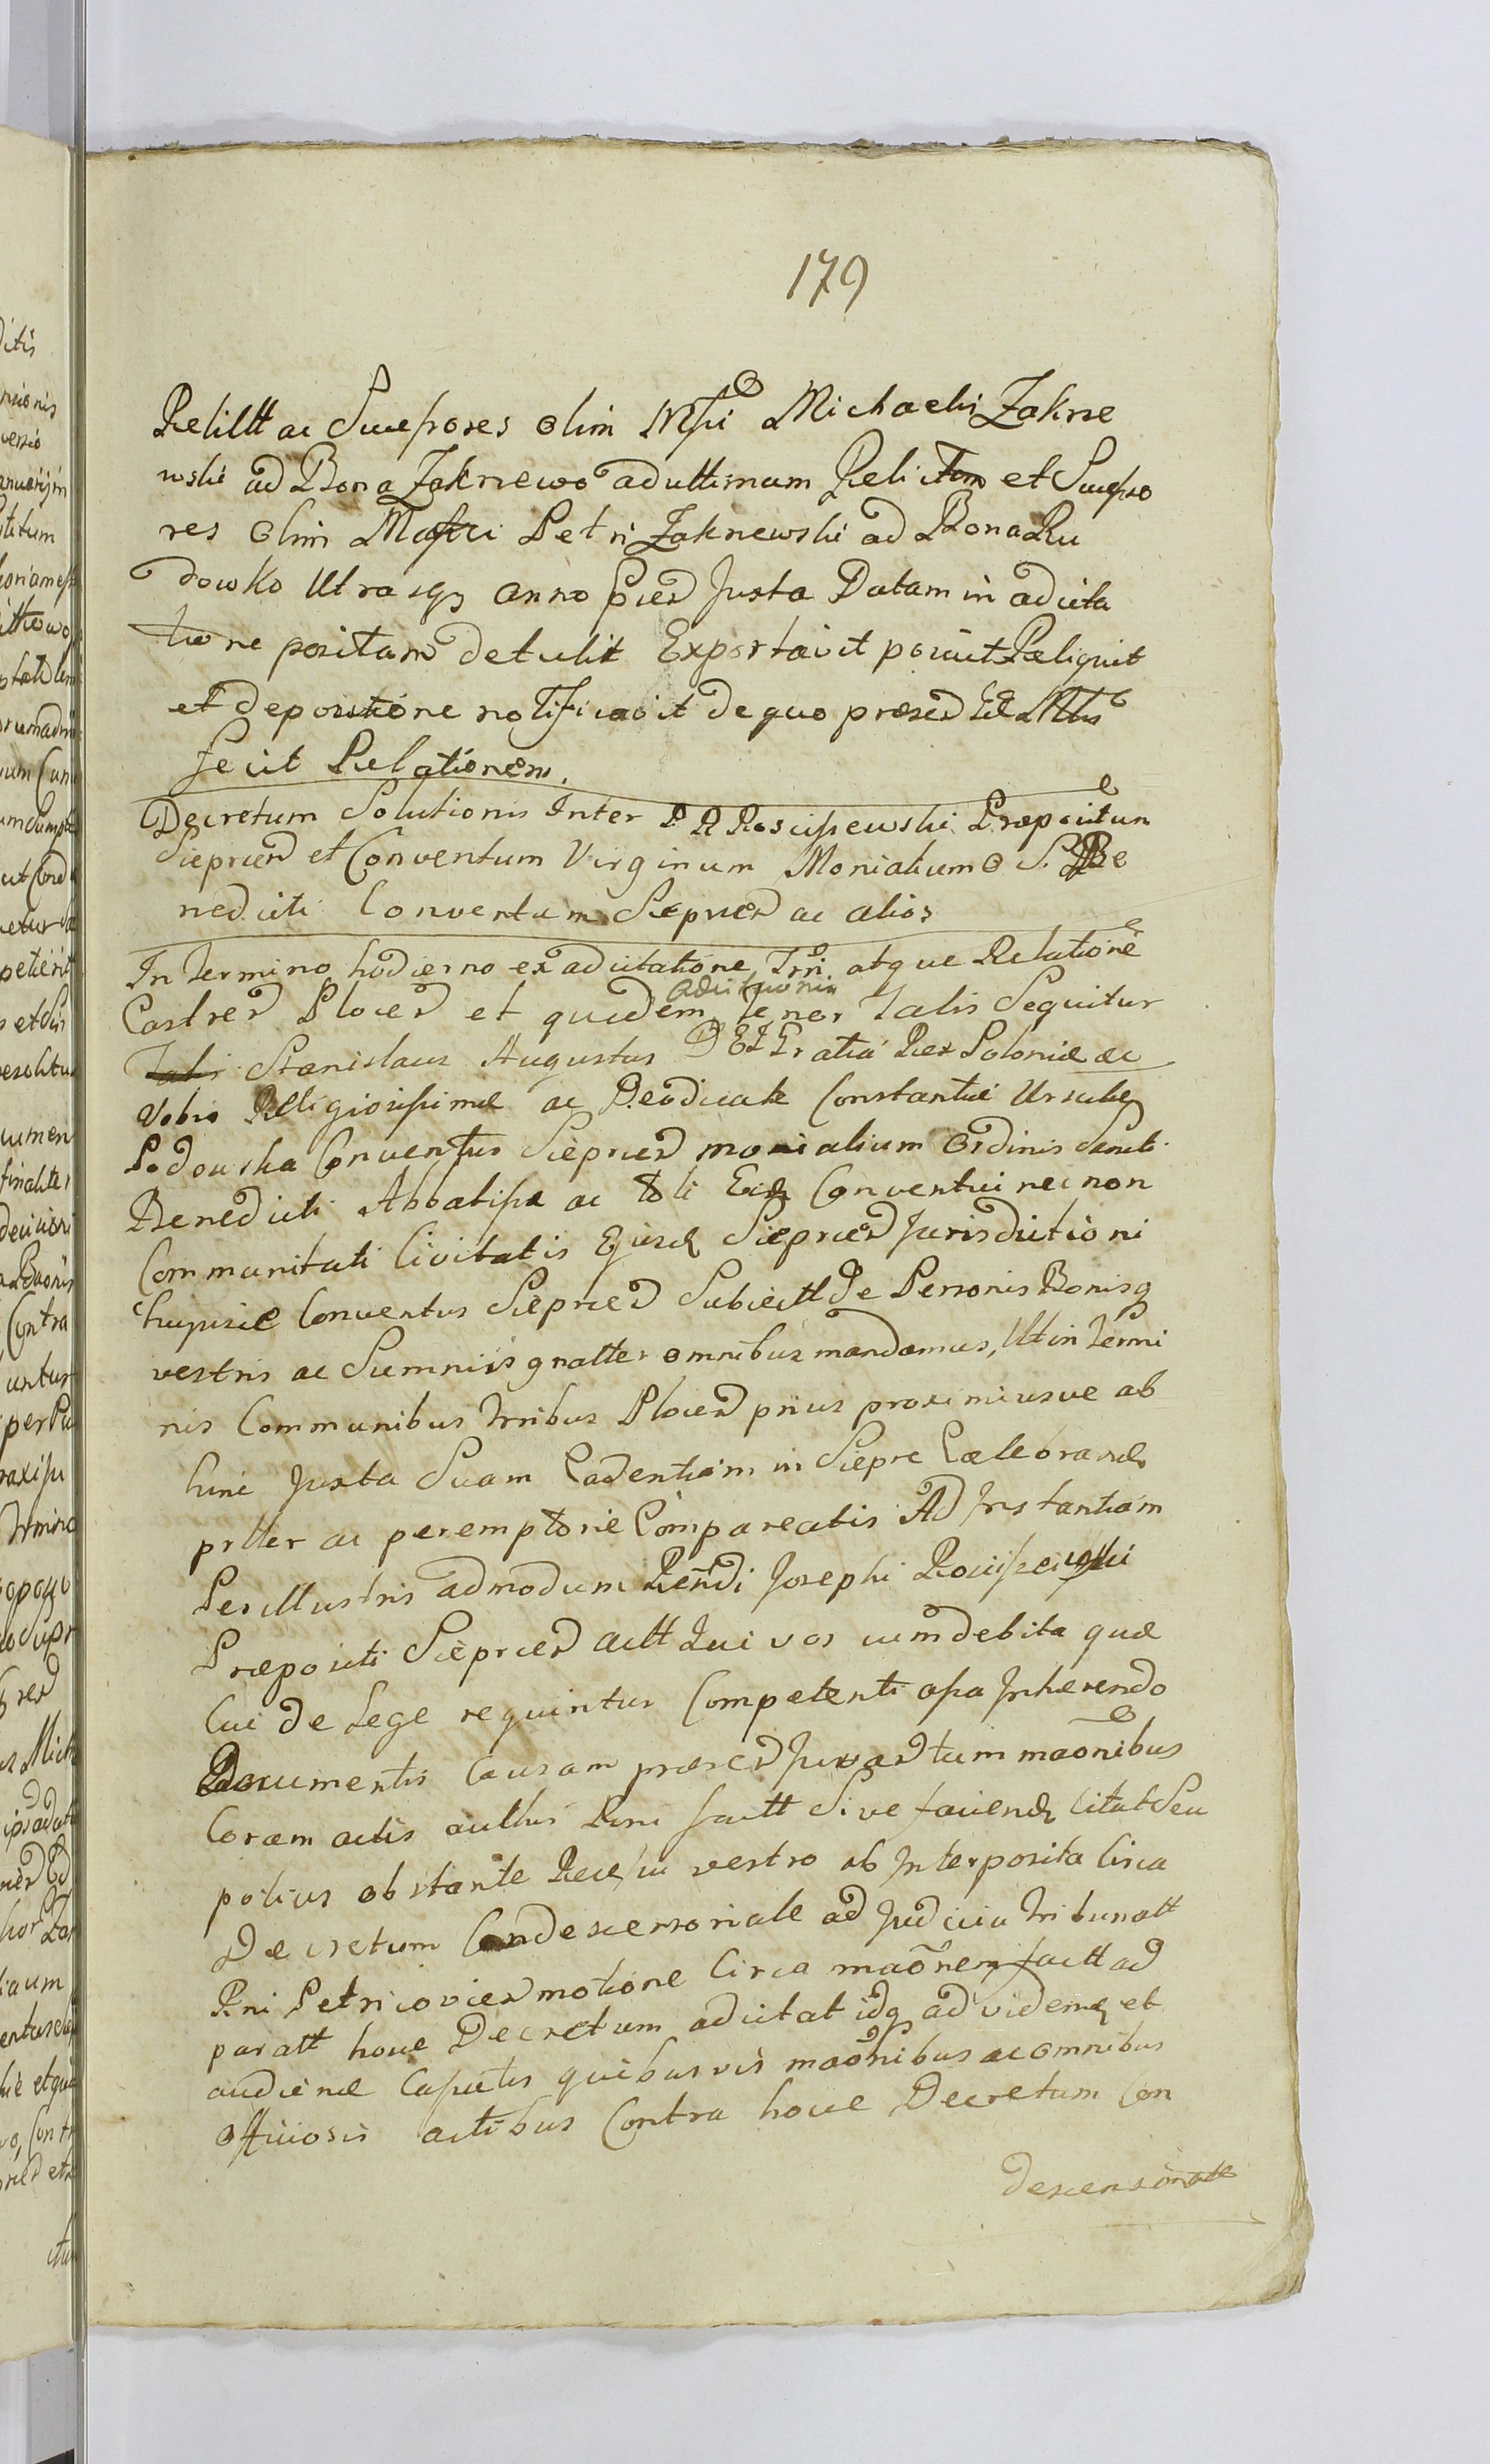 179
Relictt ac Successores olim Msci Michaelis Zakrze
wski ad Bona Zakrzewo ad ultimam Relictam et Successo
res olim Msci Petri Zakrzewski ad Bona Ru
dowko Utrasq anno Juxta Datam in adcita
tione positam detulit Exportavit posuit Reliquit
et depositione notificavit de quo præsen
fecit Relationem.
Decretum Solutionis Inter P R Rosciszewski Præpositum
Sieprcen et Conventum Virginum Monialium S. Be
nedicti Conventum Sieprcen ac alios
In Termino hodierno ex adcitatione Trni atque Relatione
Castren Plocen et quidem adcitationis Tenor Talis Sequitur
Talis Stanislaus Augustus DEI Gratia Rex Poloniæ ac
Vobis Religiosissimæ ac Deodicatæ Constantiæ Ursulæ
Podowska Conventus Sieprcen monialium Ordinis Sancti
Benedicti Abbatissæ ac toti Conventui necnon
Communitati Civitatis Ejusd Sieprcen Jurisdictioni
hujusce Conventus Sieprcen Subiectt De Personis Bonisq
vestris ac Summis gnatter omnibus mandamus, Ut in Termi
nis Communibus Trribus Plocen prius proximiusve ab
hinc Juxta Suam Cadentiam in Sieprc Celebrand
prtter ac peremptorie Compareatis Ad Instantiam
Perillustris admodum Rendi Josephi Rosciszewski
Præpositi Sieprcen actt Qui vos cum debita quæ
Cui de Lege requiritur Competenti assa Inhærendo
Documentis Causam præsen tum maonibus
Coram actis Rni factt Sive faciend Citat Seu
potius obstante Recessu vestro ab Interposita Circa
Decretum Condescensoriale ad Judicia Tribunatt
Rni Petricovien motione Circa maonem factt ad
paratt hocce Decretum adcitat idq ad videnq et
audiend quibusvis maonibus ac omnibus
officiosis actibus Contra hocce Decretum Con
descensoriale